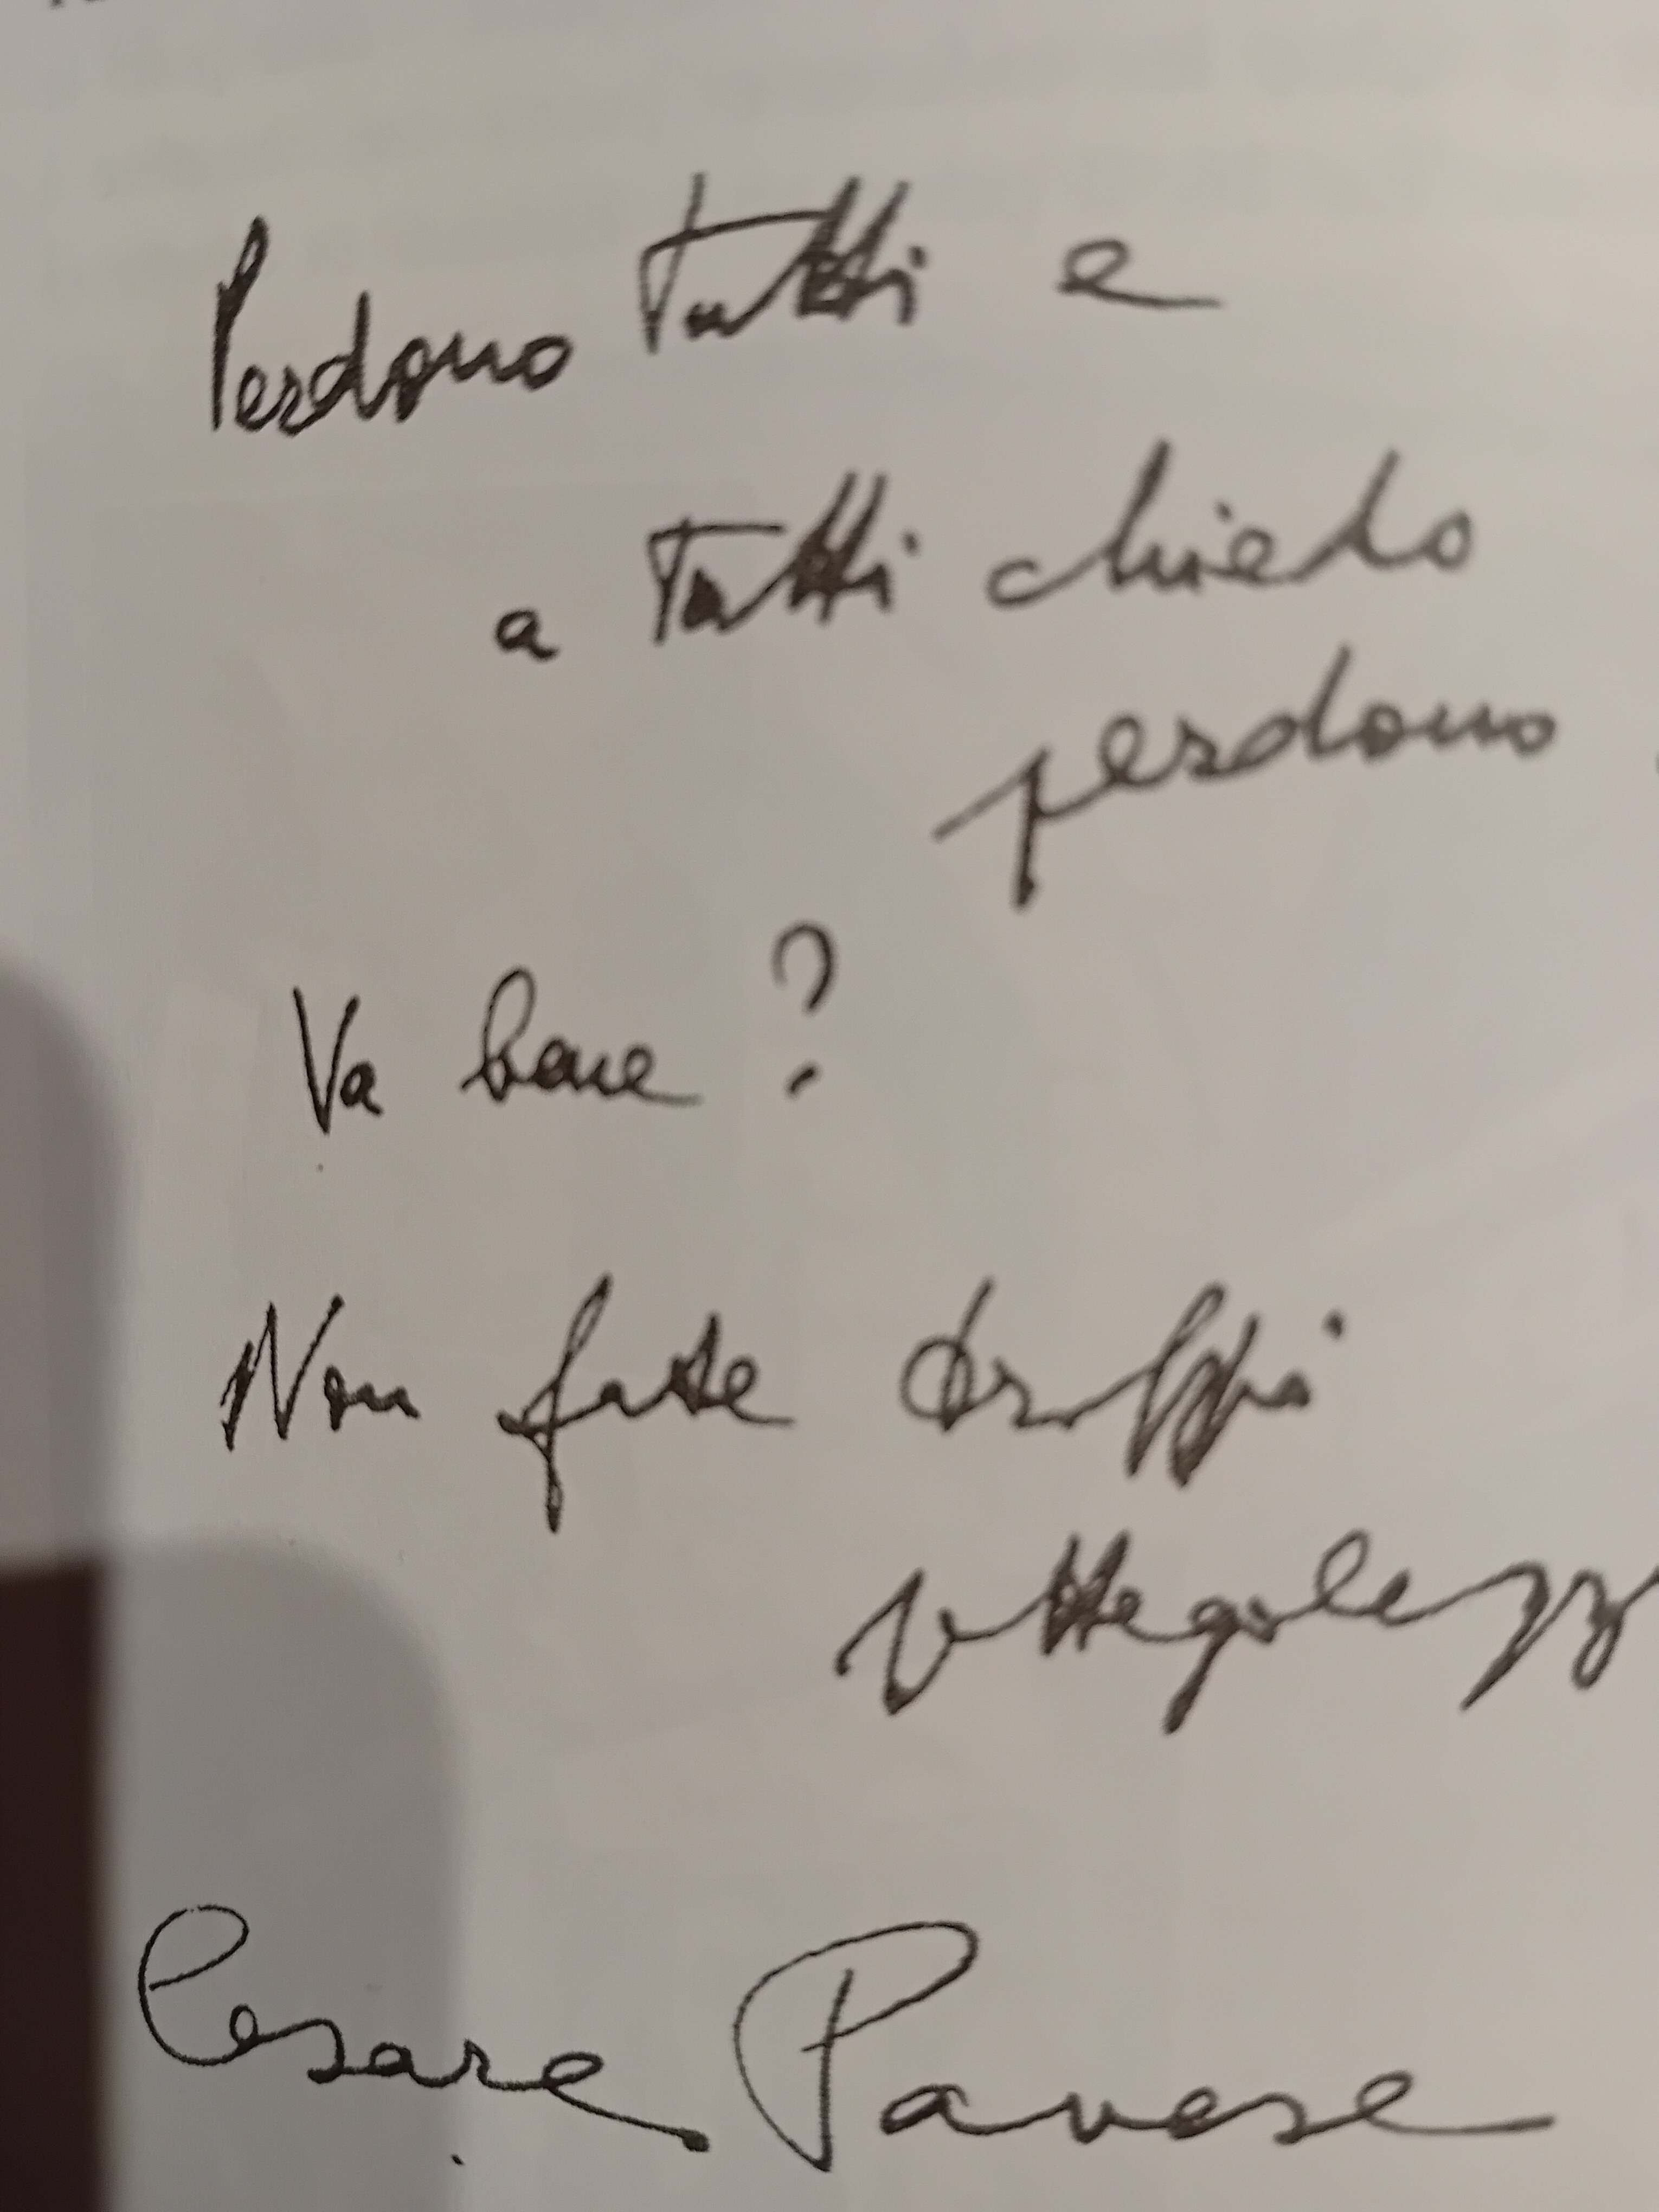 Perdono tutti e
a tutti chiedo
perdono.
Va bene?
Non fate troppi
pettegolezz
Cesare Pavese